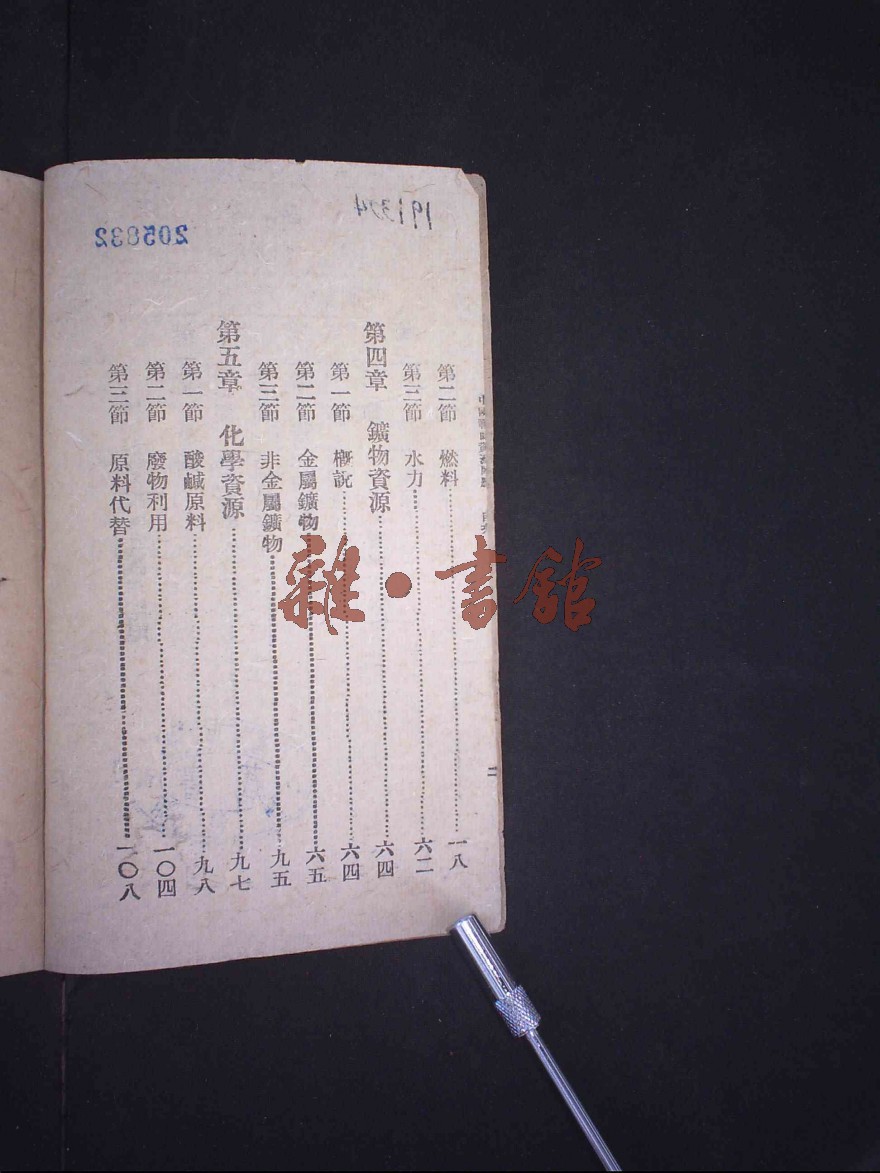 第二節 燃料……一八
第三節 水力……六二
第四章 鑛物資源……六四
第一節 概説……六四
第二節 金屬鑛物……六五
第三節 非金屬鑛物……九五
第五章 化學資源……九七
第一節 酸鹹原料……九八
第二節 廢物利用……一〇四
第三節 原料代替……一〇八
二
205832
雜·書館